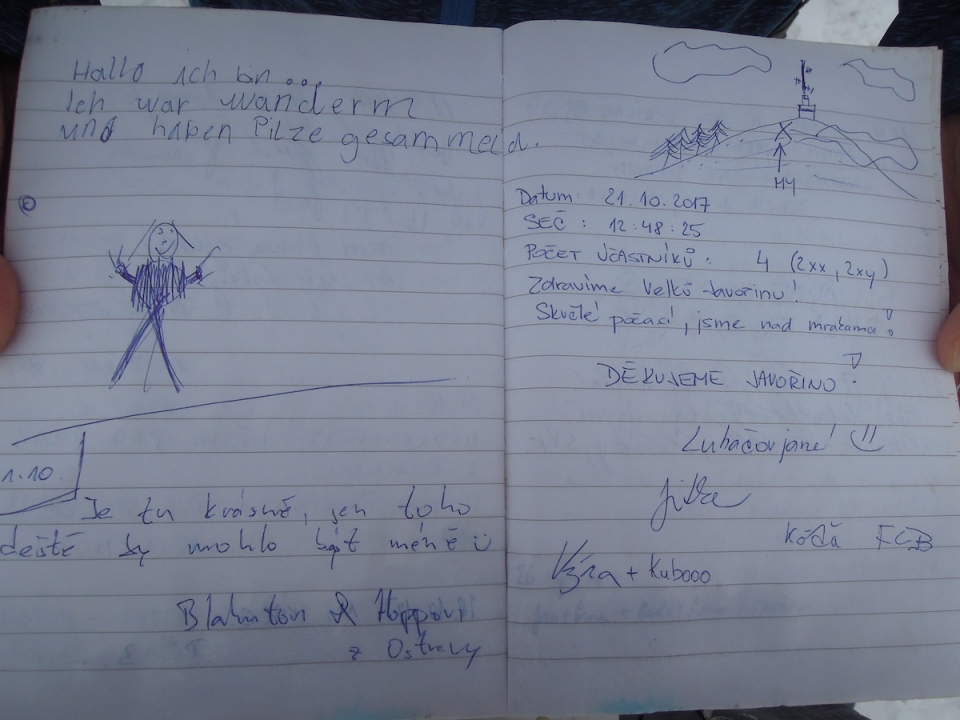 Hallo ich bin...
Ich war wanderm
und haben Pilze gesammeld.
1.10.
Je tu krásně, jen toho
deště by mohlo být méně
z Ostravy
MY
Datum: 21.10.2017
SEČ: 12:48:25
POČET ÚČASTNÍKŮ: 4 (2xx, 2xy)
Zdravíme Velkou Javořinu!
Skvělé počasí, jsme nad mrakama!
DĚKUJEME JAVOŘINO!
Luhačovjané!
Jitka
FCB
+ Kubooo